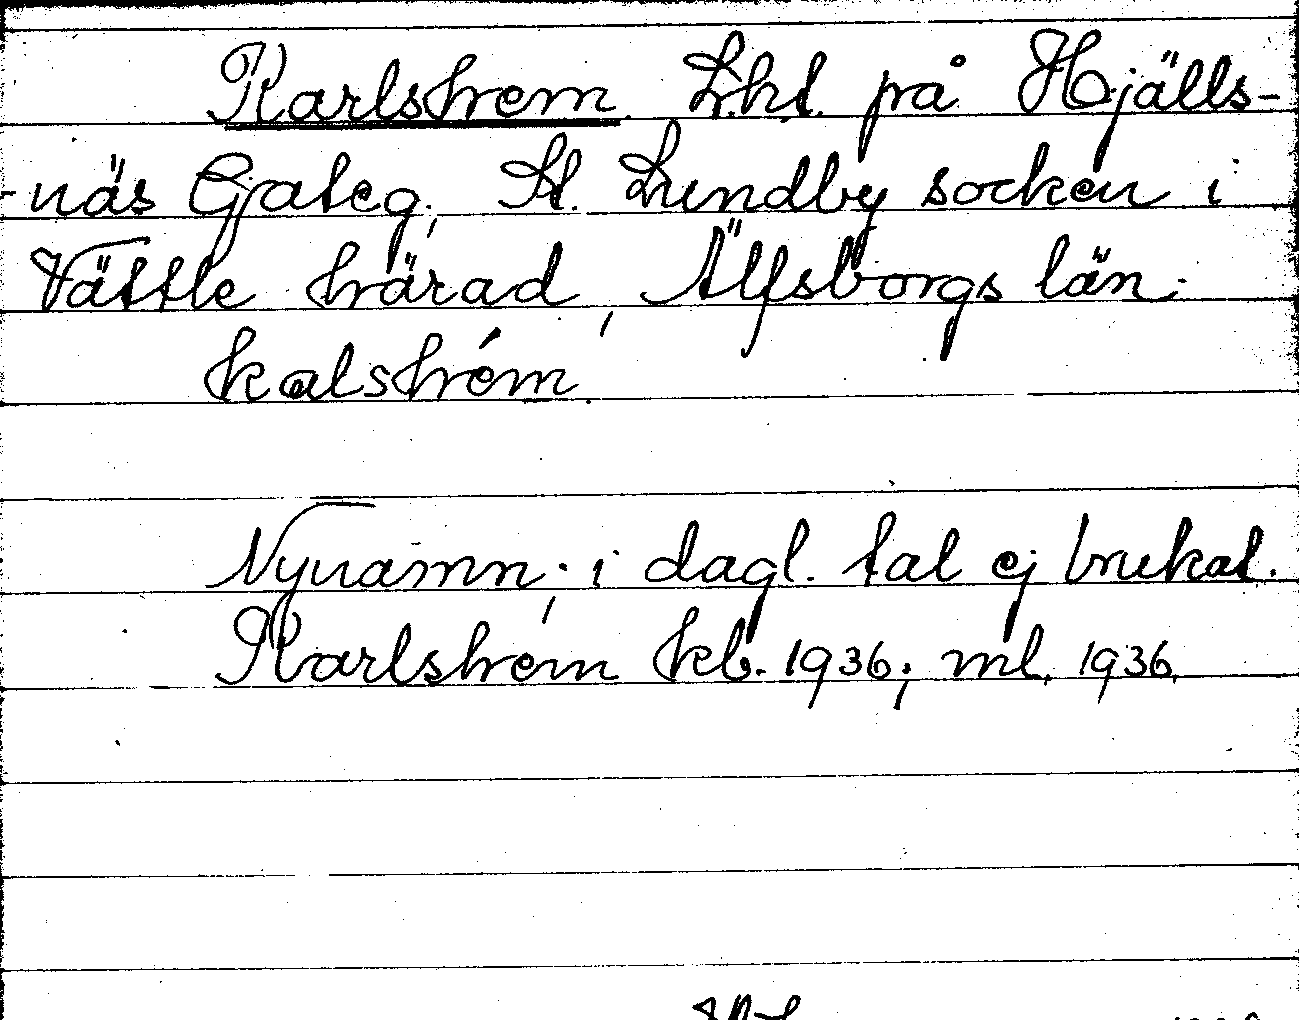 Karlshem Lht. på Hjälls-
-näs Gateg., St. Lundby socken i
Vättle härad, Älfsborgs län.
kalshém.
Nynamn; i dagl. tal ej brukat.
Karlshem kb. 1936; ml. 1936.